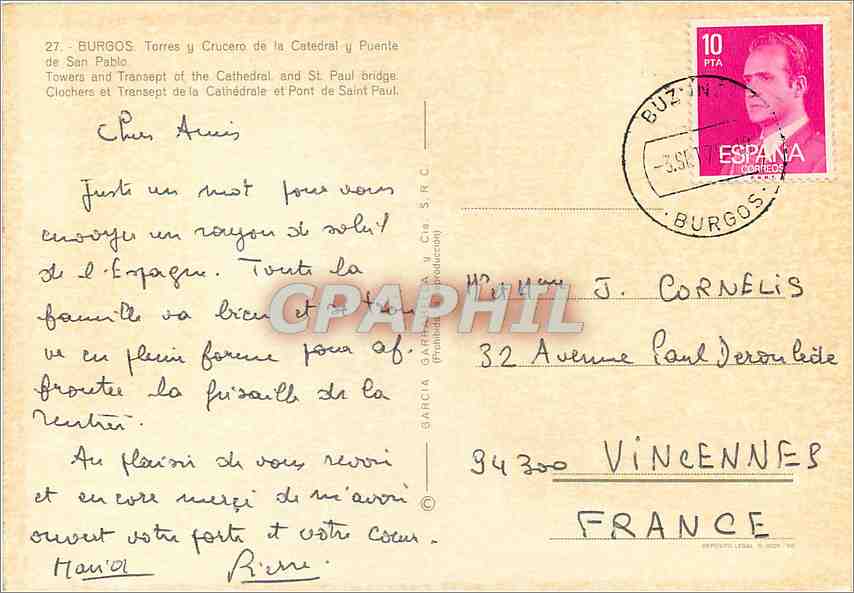 27. - BURGOS. Torres y Crucero de la Catedral y Puente
de San Pablo.
Towers and Transept of the Cathedral. and St. Paul bridge.
Clochers et Transept de la Cathédrale et Pont de Saint Paul.
Chers Amis
Juste un mot pour vous
envoyer un rayon de soleil
de l'Espagne. Toute la
famille va bien et se trou
ve en pleine forme pour af.
fronter la grisaille de la
rentrée.
Au plaisir de vous revoir
et encore merçi de m'avoir
ouvert votre porte et votre coeur.
Pierre.
GARCIA GARRABELLA y Cia. S.R.C.
(Prohibida reproducción)
©
10
PTA
ESPAÑA
CORREOS
BURGOS
Mr et Mme J. CORNELIS
32 Avenue Paul Deroulède
94300 VINCENNES
FRANCE
DEPOSITO LEGAL
CPAPHIL